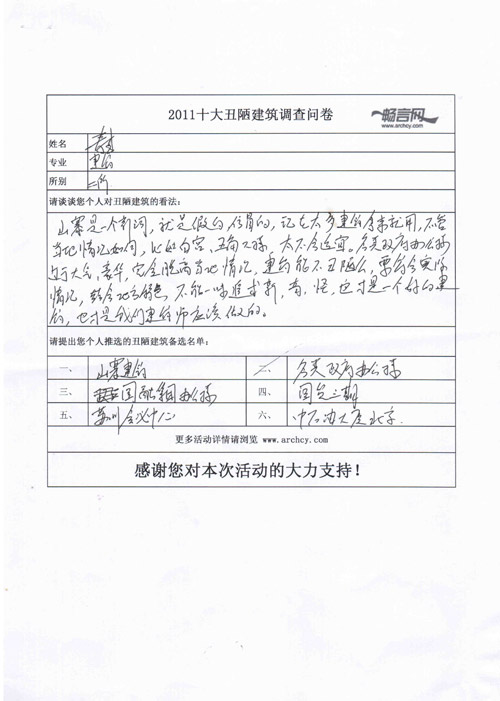 2011十大丑陋建筑调查问卷
畅言网
www.archcy.com
姓名
专业 建筑
所别 二所
请谈谈您个人对丑陋建筑的看法:
山寨是一个新词,就是假的仿冒的,现在太多建筑拿来就用,不管
当地情况如何,比如白宫、太不合适宜,各类政府办公楼
过于大气、豪华,完全脱离当地情况,建筑能不丑陋么,要符合实际
情况,结合地方特色,不能一味追求新、奇、怪,也才是一个好的建
筑,也才是我们建筑师应该做的。
请提出您个人推选的丑陋建筑备选名单:
一、 山寨建筑 二、 各类政府办公楼
三、 国融 办公楼 四、 国贸三期
五、 苏州会议中心 六、 中石油大厦北京
更多活动详情请浏览 www.archcy.com
感谢您对本次活动的大力支持!